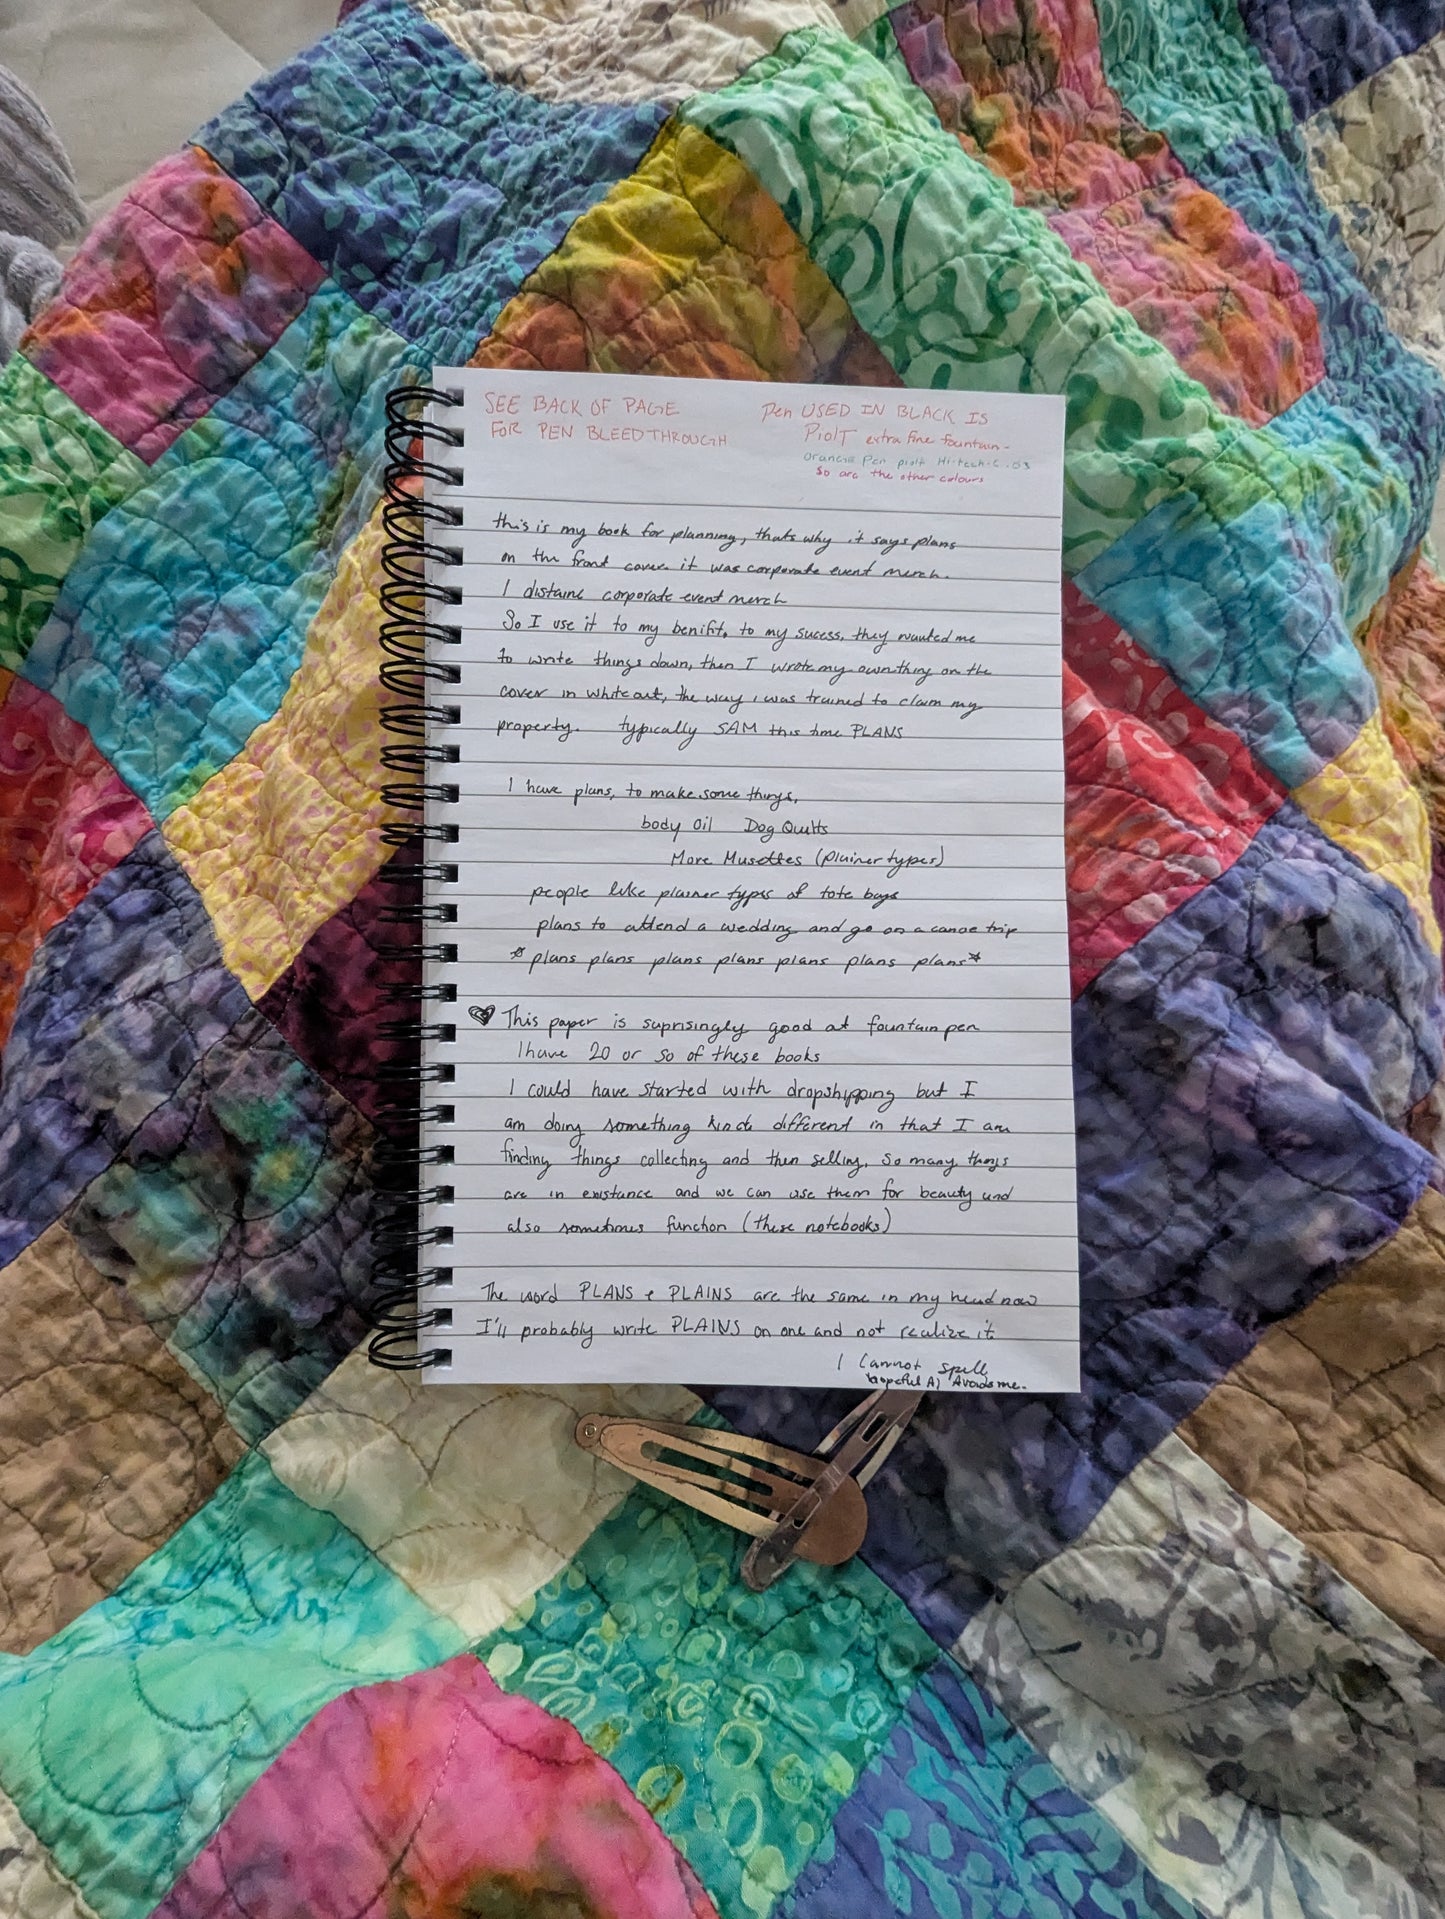 SEE BACK OF PAGE
FOR PEN BLEEDTHROUGH
Pen USED IN BLACK IS
PiolT extra fine fountain-
orange Pen piolt Hi-tech-C .03
So are the other colours
this is my book for planning, thats why it says plans
on the front cover. it was corporate event merch.
I distaine corporate event merch
So I use it to my benifit, to my sucess, they wanted me
to write things down, then I wrote my own thing on the
cover in white out, the way i was trained to claim my
property. typically SAM this time PLANS
I have plans, to make some things,
body Oil Dog Quilts
More Musettes (plainer types)
people like plainer types of tote bags
plans to attend a wedding and go on a canoe trip
*plans plans plans plans plans plans plans*
This paper is suprisingly good at fountain pen
I have 20 or so of these books
I could have started with dropshipping but I
am doing something kinda different in that I am
finding things collecting and then selling. So many things
are in existance and we can use them for beauty and
also sometimes function (these notebooks)
The word PLANS & PLAINS are the same in my head now
I'll probably write PLAINS on one and not realize it
I Cannot spell
hopeful AI Avoids me.